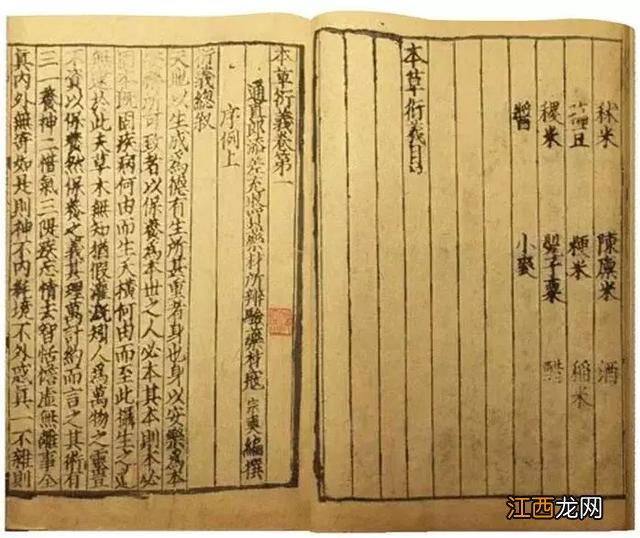 秫米 陳廩米 酒
豆 粳米 稻米
稷米 罌子粟
醬 小麥
本草衍義目
本草衍義卷第一
通直郎添差充收買藥材所辨驗藥材寇 宗奭 編撰
序例上
衍義總叙
天地以生成爲德有生所甚重者身也身以安樂爲本
安樂所可致者以保養爲本世之人必本其本則本必
固本既固疾病何由而生夭橫何由而至此攝生之道
無逮於此夫草木無知猶假灌溉矧人爲萬物之靈豈
不資以保養然保養之義其理萬計約而言之其術有
三一養神二惜氣三隄疾忘情去智恬憺虛無離事全
真內外無寄如是則神不內耗境不外惑真一不雜則
江西龙网